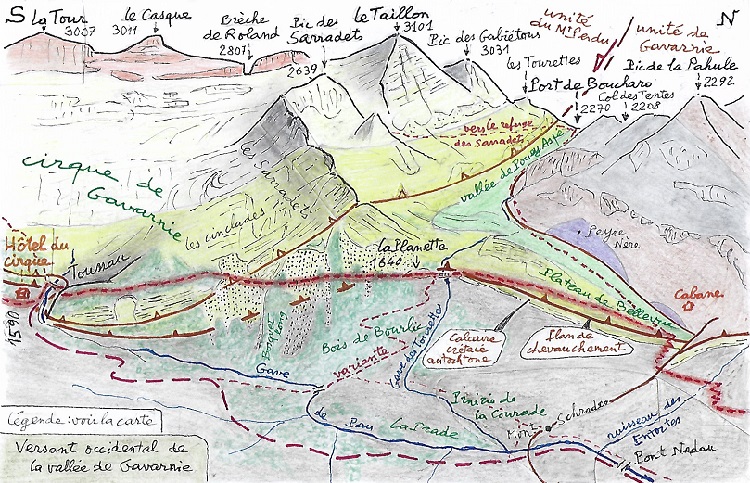 S
la Tour
3007
le Casque
3011
Brèche
de Roland
2807
Pic des
Sarradets
2639
le Taillon
3101
Pic des Gabiétous
3031
les Tourettes
unité
du Mt Perdu
unité de
Gavarnie
N
Port de Boucharo
2270
Col des Tentes
2208
Pic de la Pahule
2292
vers le refuge
des Sarradets
vallée de Pouey Aspé
cirque de
Gavarnie
les Sarradets
les cincludes
Peyre
Nère
Hôtel du
cirque
Toussau
1590
la Planette
640
Plateau de Bellevue
Cabane
Bois de Bourlic
variante
Gave des Tourettes
Calcaire
crétacé
autochtone
Plan de
chevauchement
Gave
de Pau
La Prade
Pinède de
la Courade
Mont
Schrader
ruisseau des
Entortes
Pont Nadau
Légende: voir la carte
Versant occidental de
la vallée de Gavarnie